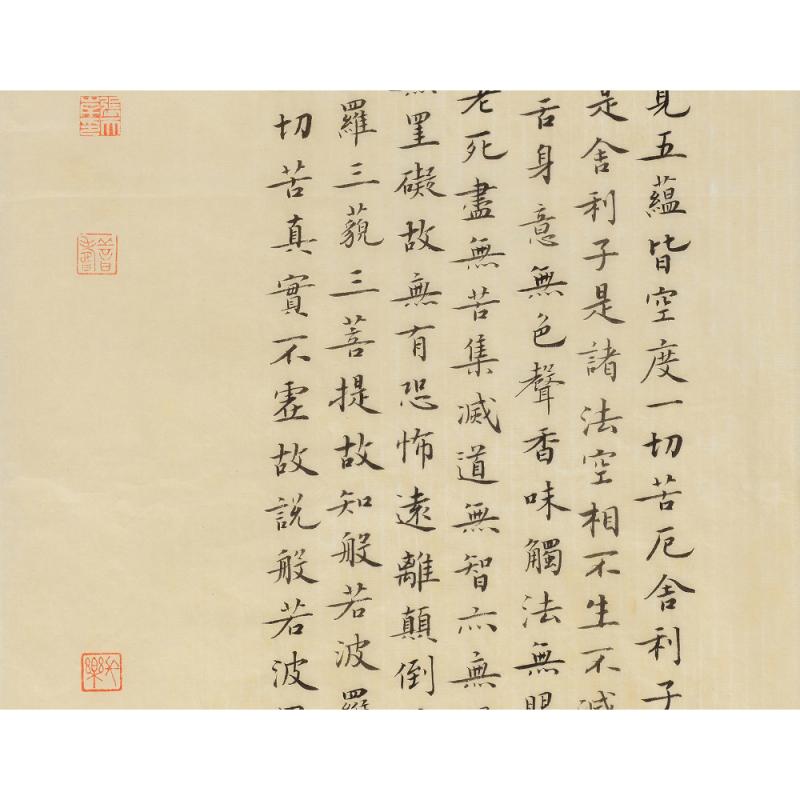 見五蘊皆空度一切苦厄舍利子
是舍利子是諸法空相不生不減
舌身意無色聲香味觸法無眼
老死盡無苦集滅道無智亦無
無罣礙故無有恐怖遠離顛倒
羅三藐三菩提故知般若波羅
切苦真實不虛故說般若波